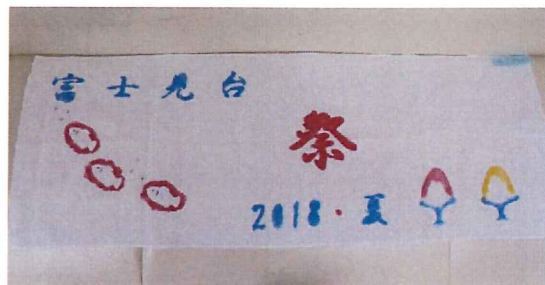 富士見台
祭
2018・夏